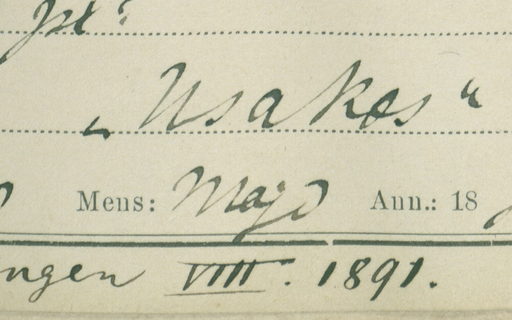 „Usakos“
Mens: Majo Ann.: 18
ngen VIII. 1891.